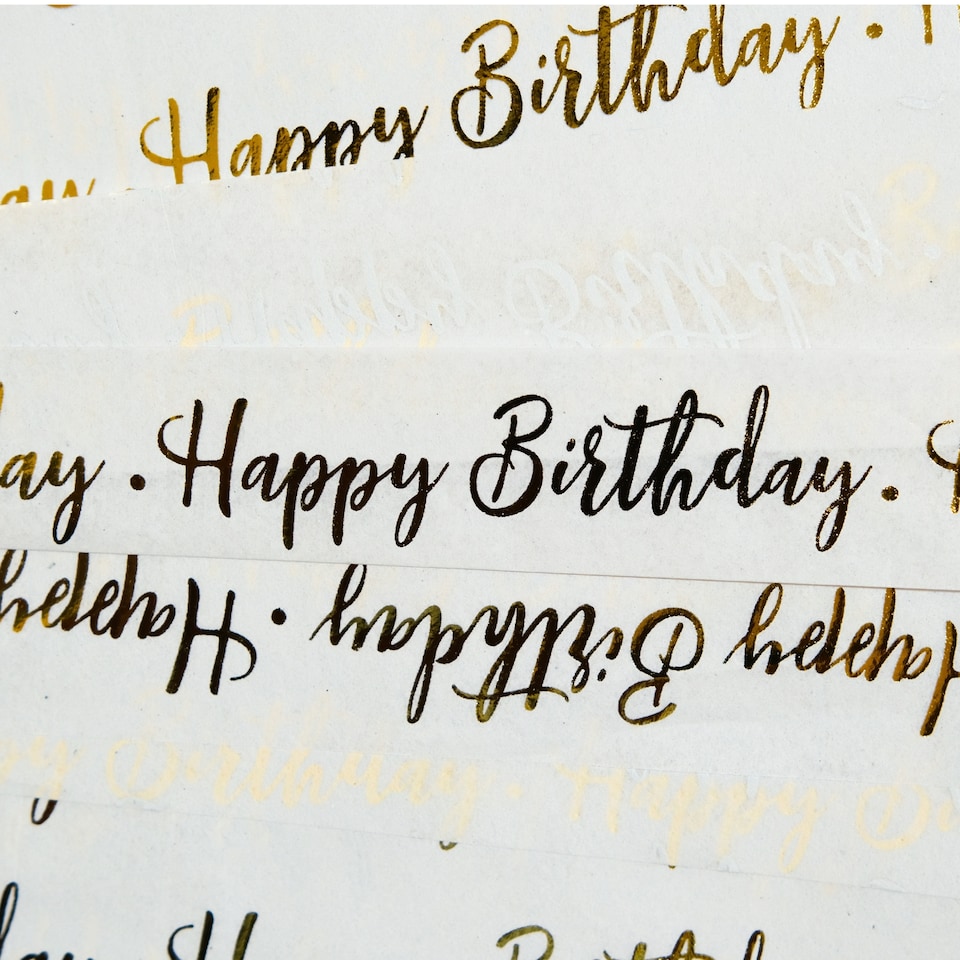 Happy Birthday •
ay • Happy Birthday •
Happy Birthday • Happy
py Birthday • Happy Bi